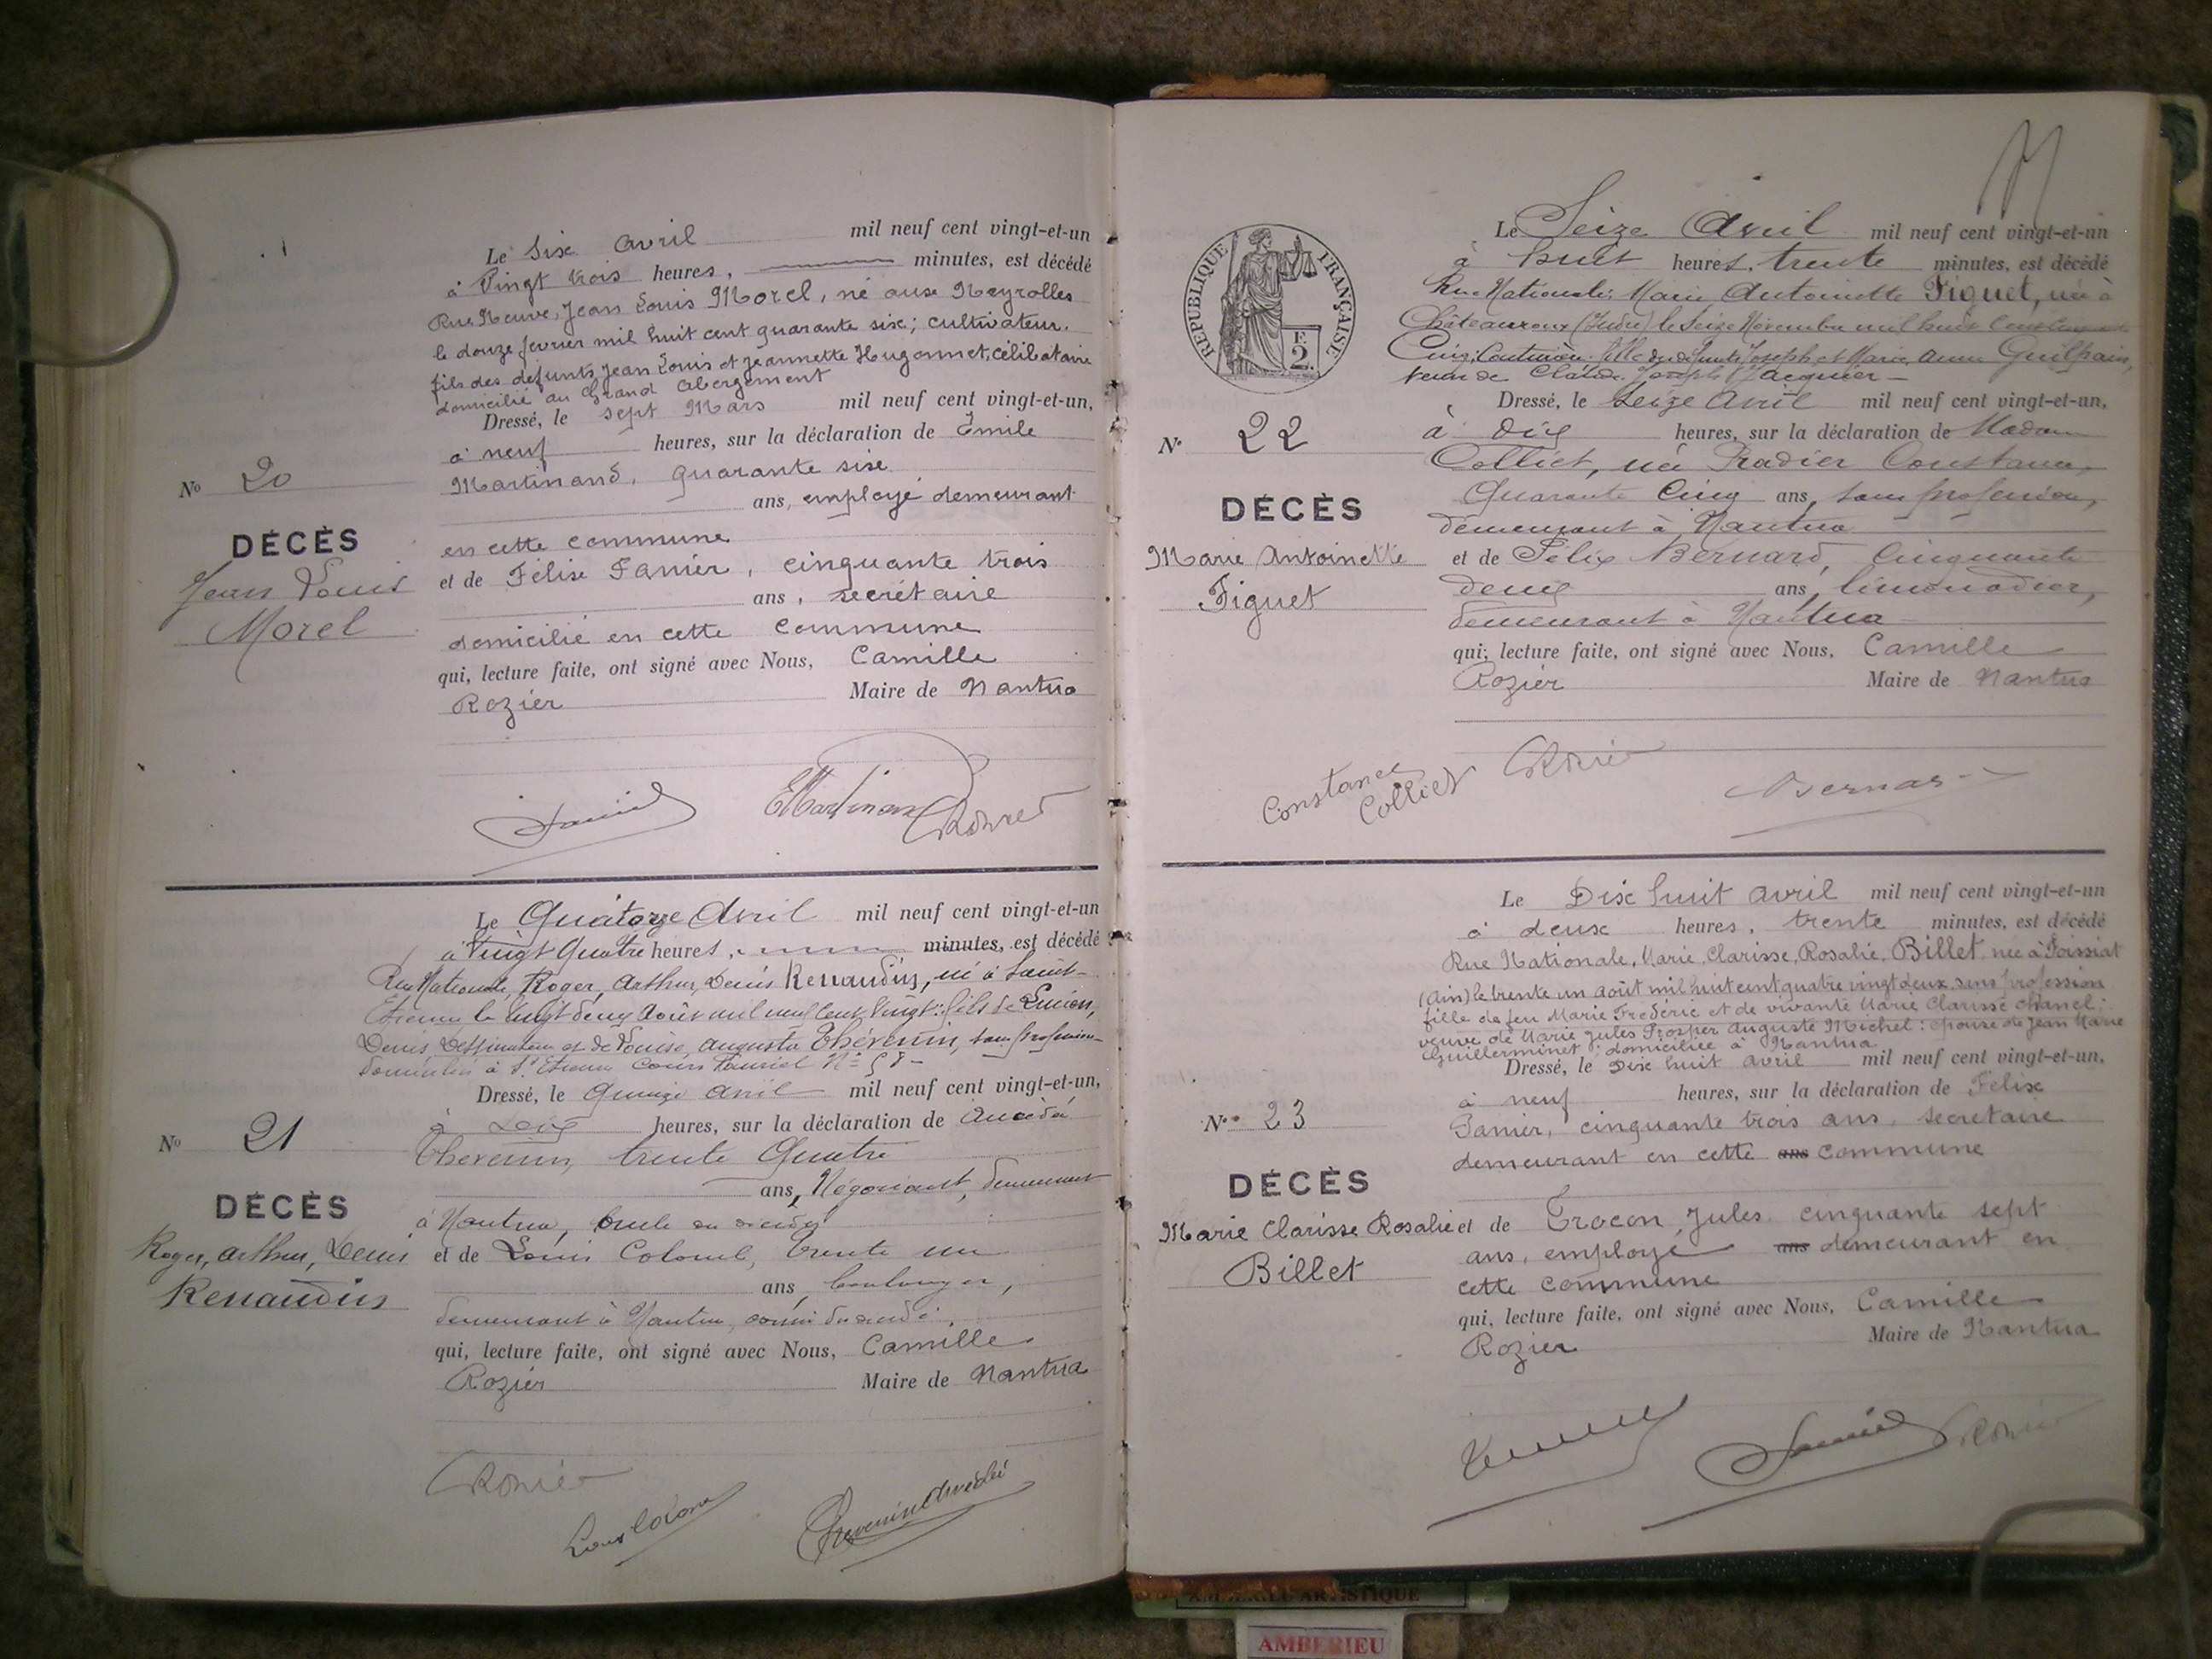 Le Six avril mil neuf cent vingt-et-un
à Vingt trois heures, minutes, est décédé
Rue Neuve, Jean Louis Morel, né aux Neyrolles
le douze février mil huit cent quarante six; cultivateur.
fils des défunts Jean Louis et Jeannette Hugonnet, célibataire
domicilié au Grand Abergement
Dressé, le sept Mars mil neuf cent vingt-et-un,
à neuf heures, sur la déclaration de Émile
Martinand, quarante six
ans, employé demeurant
en cette commune
et de Félix Janier, cinquante trois
ans, secrétaire
domicilié en cette commune
qui, lecture faite, ont signé avec Nous, Camille
Rozier Maire de Nantua
No 20
DÉCÈS
Jean Louis
Morel
Janier EMartinand Rozier
Le Quatorze Avril mil neuf cent vingt-et-un
à Vingt quatre heures, minutes, est décédé
Rue Nationale, Roger, Arthur, Denis Renaudin, né à Saint-
Etienne le vingt deux Août mil neuf cent vingt: fils de Lucien,
Denis, dessinateur et de Louise, Augusta Thévenin, sans profession
domiciliés à St Etienne Cours Fauriel
Dressé, le quinze avril mil neuf cent vingt-et-un,
à heures, sur la déclaration de Amédé
Thevenin, trente quatre
ans, Négociant, demeurant
à Nantua, oncle du décédé
et de Louis Colomb, trente un
ans, boulanger,
demeurant à Nantua,
qui, lecture faite, ont signé avec Nous, Camille
Rozier Maire de Nantua
No 21
DÉCÈS
Roger, Arthur, Denis
Renaudin
Rozier
Louis Colomb Thevenin Amédé
RÉPUBLIQUE FRANÇAISE
F.
2.
Le Seize Avril mil neuf cent vingt-et-un
à huit heures, trente minutes, est décédé
Rue Nationale: Marie Antoinette Figuet, née à
Châteauroux (Indre) le Seize Novembre mil huit cent
Cinq; Couturière. fille des défunts Joseph et Marie Anne Guilpain,
veuve de Claude Joseph Jacquier
Dressé, le Seize Avril mil neuf cent vingt-et-un,
à dix heures, sur la déclaration de Madame
Colliet, née Pradier Constance,
Quarante Cinq ans, sans profession,
demeurant à Nantua
et de Félix Bernard, Cinquante
deux ans, limonadier,
demeurant à Nantua
qui, lecture faite, ont signé avec Nous, Camille
Rozier Maire de Nantua
No 22
DÉCÈS
Marie Antoinette
Figuet
Constance
Colliet Rozier Bernard
Le Dix huit avril mil neuf cent vingt-et-un
à deux heures, trente minutes, est décédé
Rue Nationale, Marie, Clarisse, Rosalie, Billet née à Foissiat
(Ain) le trente un Août mil huit cent quatre vingt deux, sans profession
fille de feu Marie Frédéric et de vivante Marie Clarisse Chanel:
veuve de Marie Jules Prosper Auguste Michel: épouse de Jean Marie
Guillerminet: domiciliée à Nantua
Dressé, le Dix huit avril mil neuf cent vingt-et-un,
à neuf heures, sur la déclaration de Félix
Janier, cinquante trois ans, secretaire
demeurant en cette ans commune
et de Trocon, Jules cinquante sept
ans, employé ans demeurant en
cette commune
qui, lecture faite, ont signé avec Nous, Camille
Rozier Maire de Nantua
No 23
DÉCÈS
Marie Clarisse Rosalie
Billet
Janier Rozier
AMBERIEU